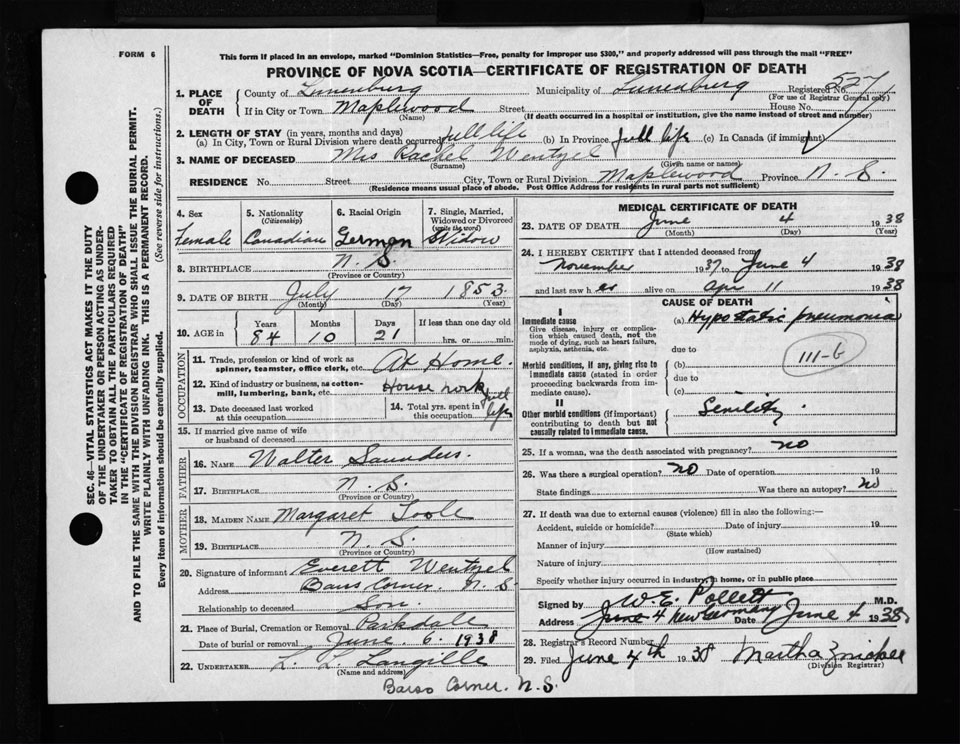 FORM 6
This form if placed in an envelope, marked "Dominion Statistics—Free, penalty for improper use $300," and properly addressed will pass through the mail "FREE"
PROVINCE OF NOVA SCOTIA—CERTIFICATE OF REGISTRATION OF DEATH
1. PLACE OF DEATH County of Lunenburg Municipality of Lunenburg Registered No. 527
(For use of Registrar General only)
If in City or Town Maplewood Street House No.
(Name) (If death occurred in a hospital or institution, give the name instead of street and number)
2. LENGTH OF STAY (in years, months and days)
(a) In City, Town or Rural Division where death occurred full life (b) In Province full life (c) In Canada (if immigrant)
3. NAME OF DECEASED Mrs Rachel Wentzel
(Surname) (Given name or names)
RESIDENCE No. Street City, Town or Rural Division Maplewood Province N. S.
(Residence means usual place of abode. Post Office Address for residents in rural parts not sufficient)
4. Sex 5. Nationality (Citizenship) 6. Racial Origin 7. Single, Married, Widowed or Divorced (write the word)
Female Canadian German Widow
8. BIRTHPLACE N. S.
(Province or Country)
9. DATE OF BIRTH July 17 1853
(Month) (Day) (Year)
10. AGE in Years Months Days If less than one day old
84 10 21 hrs. or min.
OCCUPATION
11. Trade, profession or kind of work as spinner, teamster, office clerk, etc. At Home.
12. Kind of industry or business, as cotton-mill, lumbering, bank, etc. House work
13. Date deceased last worked at this occupation
14. Total yrs. spent in this occupation full life
15. If married give name of wife or husband of deceased
FATHER
16. NAME Walter Saunders.
17. BIRTHPLACE N. S.
(Province or Country)
MOTHER
18. MAIDEN NAME Margaret Toole
19. BIRTHPLACE N. S.
(Province or Country)
20. Signature of informant Everett Wentzel
Address Barss Corner, N. S
Relationship to deceased Son.
21. Place of Burial, Cremation or Removal Parkdale
Date of burial or removal June 6. 1938
22. UNDERTAKER L. L. Langille
(Name and address)
Barss Corner. N.S.
MEDICAL CERTIFICATE OF DEATH
23. DATE OF DEATH June 4 1938
(Month) (Day) (Year)
24. I HEREBY CERTIFY that I attended deceased from
November 1937 to June 4 1938
and last saw her alive on Apr 11 1938
CAUSE OF DEATH
I
Immediate cause (a) Hypostatic pneumonia
Give disease, injury or complication which caused death, not the mode of dying, such as heart failure, asphyxia, asthenia, etc.
due to
111-b
Morbid conditions, if any, giving rise to immediate cause (stated in order proceeding backwards from immediate cause).
(b)
due to
(c)
II
Other morbid conditions (if important) contributing to death but not causally related to immediate cause.
Senility.
25. If a woman, was the death associated with pregnancy? no
26. Was there a surgical operation? no Date of operation 19
State findings Was there an autopsy? no
27. If death was due to external causes (violence) fill in also the following:—
Accident, suicide or homicide? Date of injury 19
(State which)
Manner of injury
(How sustained)
Nature of injury
Specify whether injury occurred in industry, in home, or in public place
Signed by W. E. Pollett M.D.
Address June 4 New Germany Date June 4 1938
28. Registrar's Record Number
29. Filed June 4th 1938 Martha Zinck
(Division Registrar)
SEC. 46—VITAL STATISTICS ACT MAKES IT THE DUTY
OF THE UNDERTAKER OR PERSON ACTING AS UNDER-
TAKER TO OBTAIN ALL THE PARTICULARS REQUIRED
IN THE "CERTIFICATE OF REGISTRATION OF DEATH"
AND TO FILE THE SAME WITH THE DIVISION REGISTRAR WHO SHALL ISSUE THE BURIAL PERMIT.
WRITE PLAINLY WITH UNFADING INK. THIS IS A PERMANENT RECORD.
Every item of information should be carefully supplied. (See reverse side for instructions.)